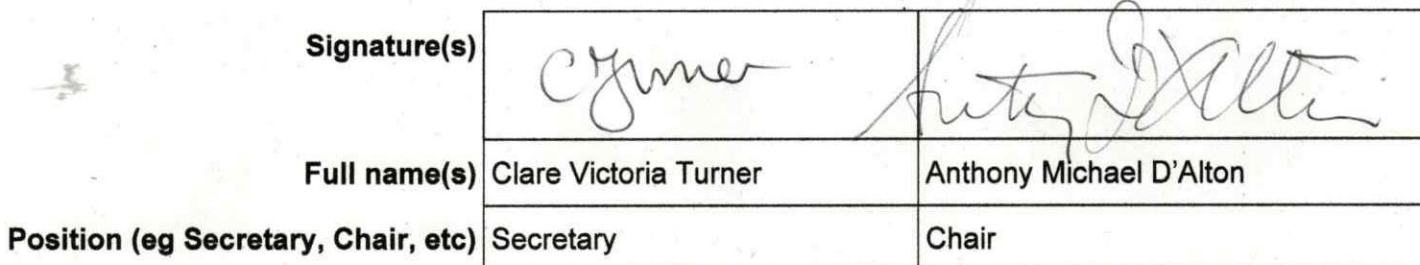 Signature(s) CTurner Anthony D'Alton
Full name(s) Clare Victoria Turner Anthony Michael D'Alton
Position (eg Secretary, Chair, etc) Secretary Chair